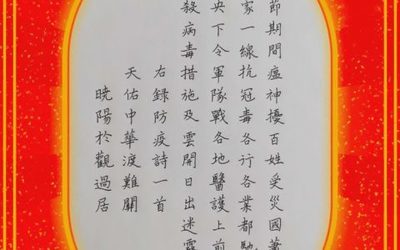 節期間瘟神擾百姓受災國
家一線抗冠毒各行各業都馳
央下令軍隊戰各地醫護上前
殺病毒措施及雲開日出迷霧
右錄防疫詩一首
天佑中華渡難關
曉陽於觀過居